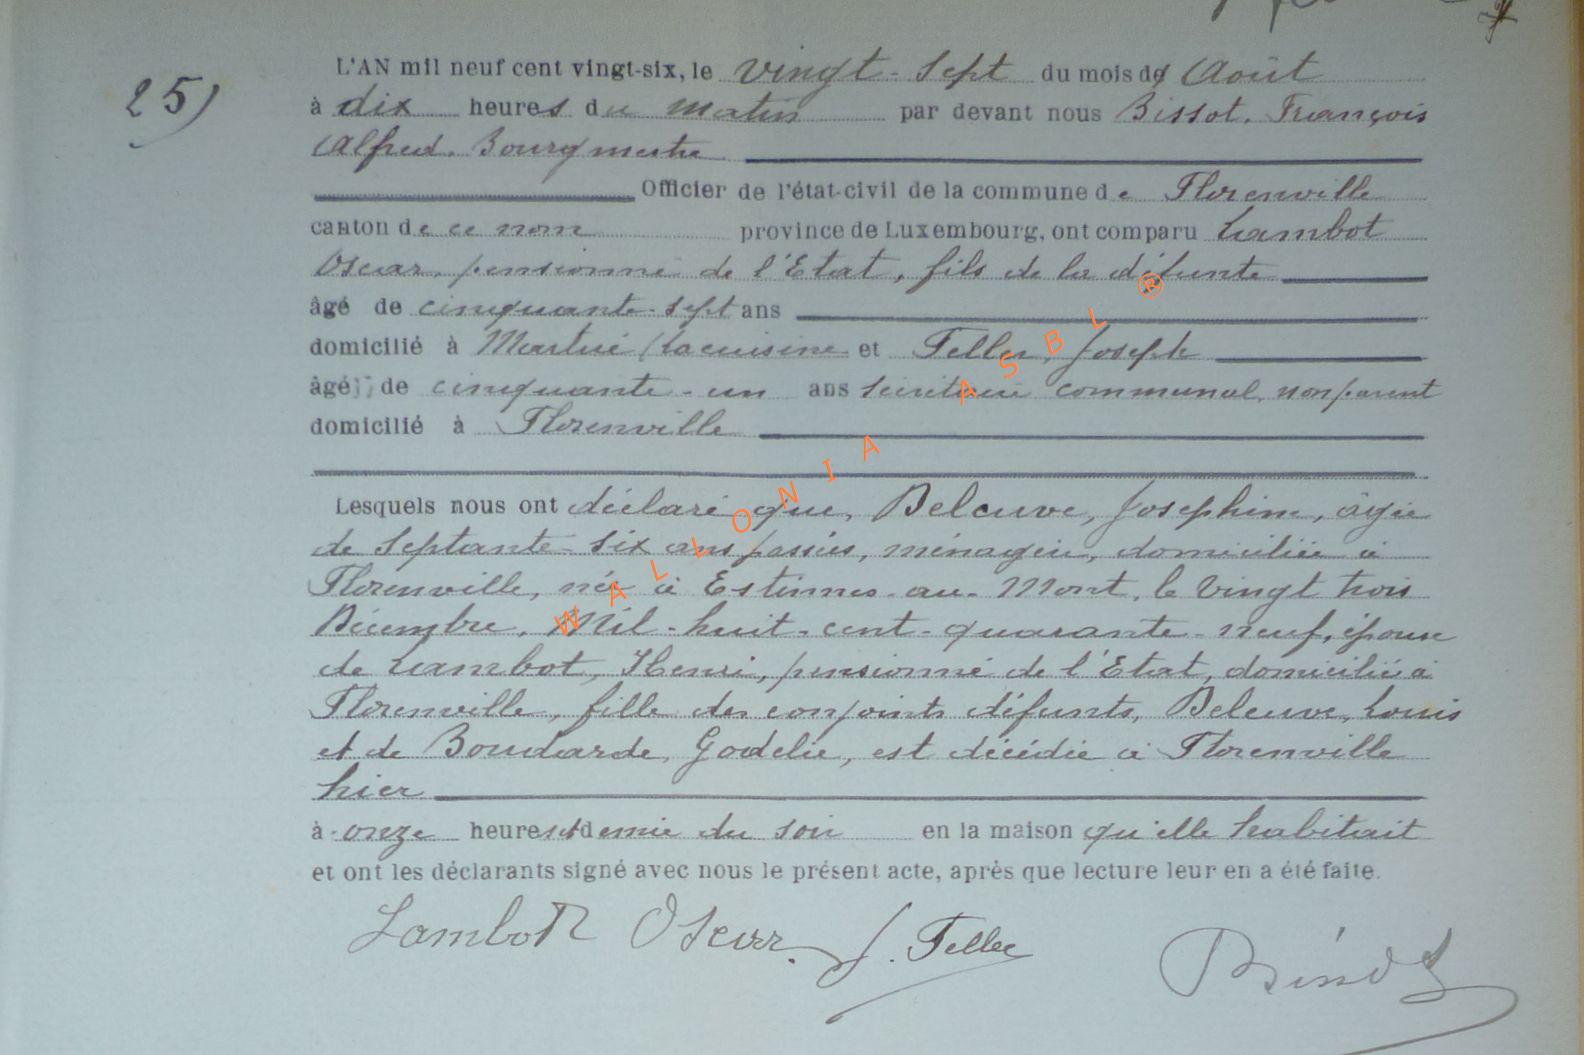 25)
L'AN mil neuf cent vingt-six, le vingt-sept du mois de Août
à dix heures du matin par devant nous Bissot, François
Alfred, Bourgmestre
Officier de l'état-civil de la commune de Florenville
canton de ce nom province de Luxembourg, ont comparu Lambot
Oscar, pensionné de l'Etat, fils de la défunte
âgé de cinquante-sept ans
domicilié à Martué/Lacuisine et Feller, Joseph
âgé de cinquante-un ans secrétaire communal, non parent
domicilié à Florenville
Lesquels nous ont déclaré que, Beleuve, Josephine, âgée
de Septante-six ans passés, ménagère, domiciliée à
Florenville, née à Estinnes-au-Mont, le vingt trois
Décembre, Mil-huit-cent-quarante-neuf, épouse
de Lambot, Henri, pensionné de l'Etat, domiciliée à
Florenville, fille des conjoints défunts, Beleuve, Louis
et de Boudarde, Godelie, est décédée à Florenville
hier
à onze heures et demie du soir en la maison qu'elle habitait
et ont les déclarants signé avec nous le présent acte, après que lecture leur en a été faite.
Lambot Oscar J. Feller
WALLONIA ASBL ®